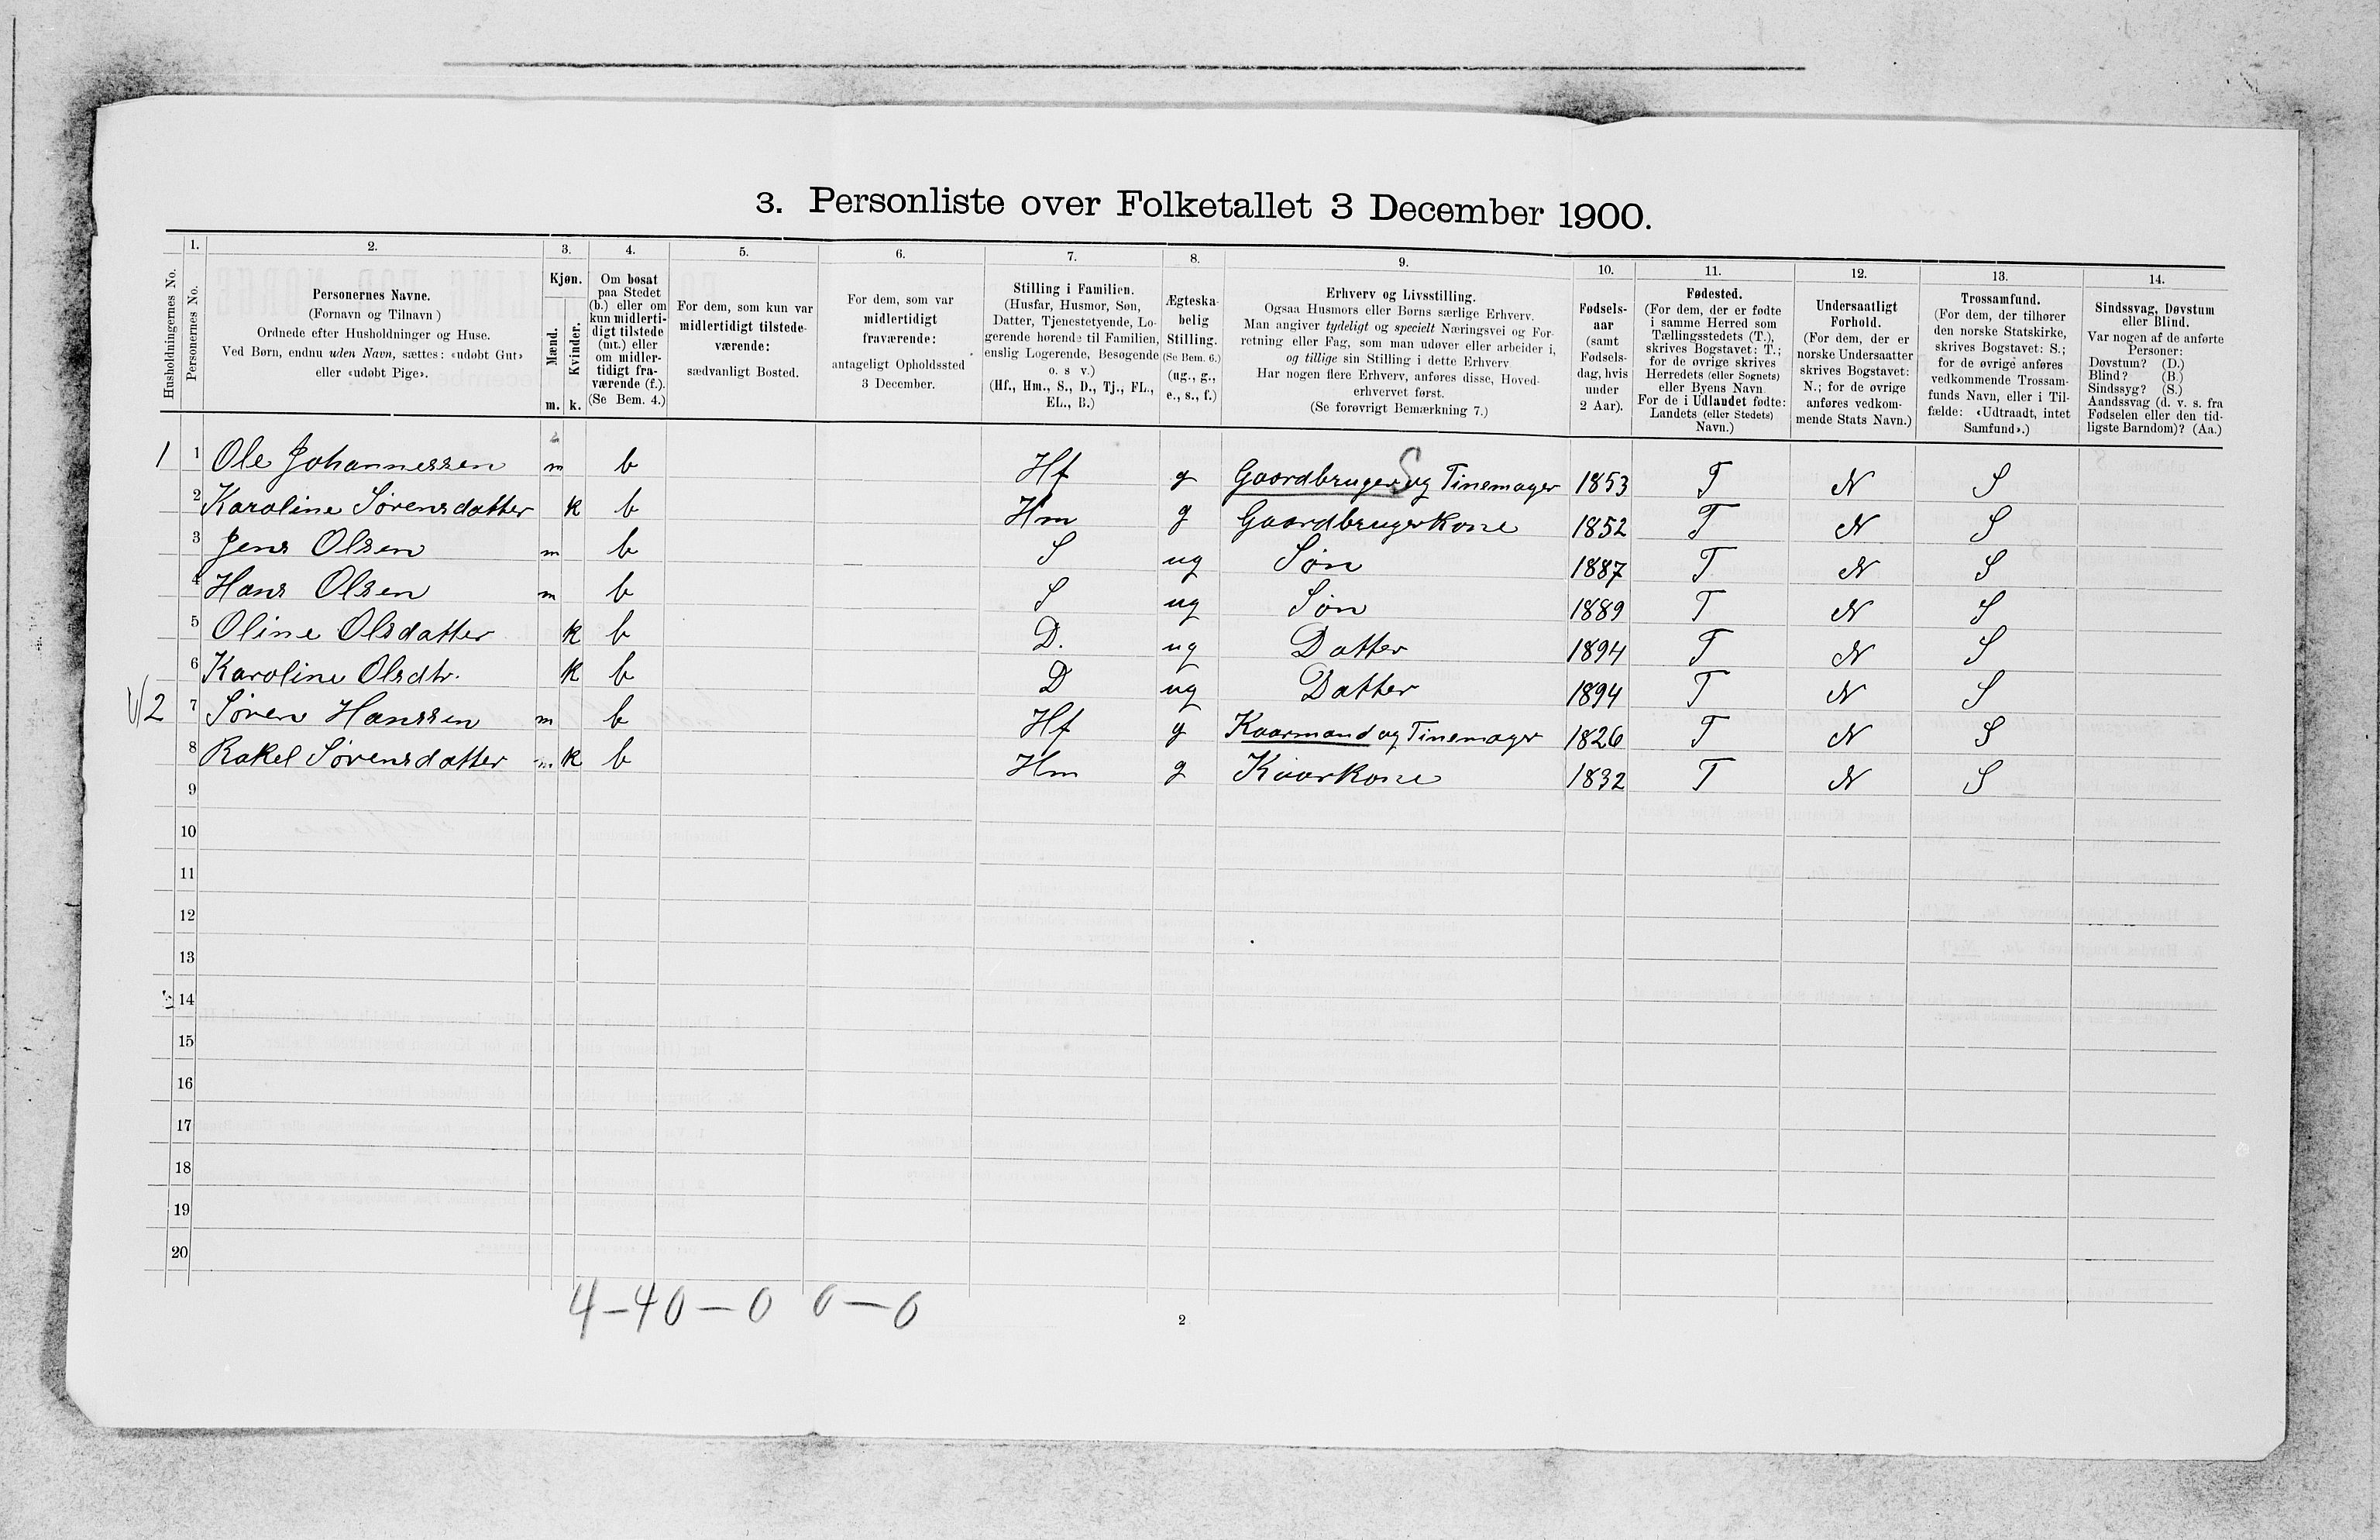 3. Personliste over Folketallet 3 December 1900.
Husholdningernes No.
1.
Personernes No.
2.
Personernes Navne.
(Fornavn og Tilnavn)
Ordnede efter Husholdninger og Huse.
Ved Børn, endnu uden Navn, sættes: «udøbt Gut»
eller «udøbt Pige».
3.
Kjøn.
Mænd.
Kvinder.
m. k.
4.
Om bosat
paa Stedet
(b.) eller om
kun midlerti-
digt tilstede
(mt.) eller
om midler-
tidigt fra-
værende (f.).
(Se Bem. 4.)
5.
For dem, som kun var
midlertidigt tilstede-
værende:
sædvanligt Bosted.
6.
For dem, som var
midlertidigt
fraværende:
antageligt Opholdssted
3 December.
7.
Stilling i Familien.
(Husfar, Husmor, Søn,
Datter, Tjenestetyende, Lo-
gerende hørende til Familien,
enslig Logerende, Besøgende
o. s v.)
(Hf., Hm., S., D., Tj., FL.,
EL., B.)
8.
Ægteska-
belig
Stilling.
(Se Bem. 6.)
(ug., g.,
e., s., f.)
9.
Erhverv og Livsstilling.
Ogsaa Husmors eller Børns særlige Erhverv.
Man angiver tydeligt og specielt Næringsvei og For-
retning eller Fag, som man udøver eller arbeider i,
og tillige sin Stilling i dette Erhverv
Har nogen flere Erhverv, anføres disse, Hoved-
erhvervet først.
(Se forøvrigt Bemærkning 7.)
10.
Fødsels-
aar
(samt
Fødsels-
dag, hvis
under
2 Aar).
11.
Fødested.
(For dem, der er fødte
i samme Herred som
Tællingsstedets (T.),
skrives Bogstavet: T.;
for de øvrige skrives
Herredets (eller Sognets)
eller Byens Navn
For de i Udlandet fødte:
Landets (eller Stedets)
Navn.)
12.
Undersaatligt
Forhold.
(For dem, der er
norske Undersaatter
skrives Bogstavet:
N.; for de øvrige
anføres vedkom-
mende Stats Navn.)
13.
Trossamfund.
(For dem, der tilhører
den norske Statskirke,
skrives Bogstavet: S.;
for de øvrige anføres
vedkommende Trossam-
funds Navn, eller i Til-
fælde: «Udtraadt, intet
Samfund».)
14.
Sindssvag, Døvstum
eller Blind.
Var nogen af de anførte
Personer:
Døvstum? (D.)
Blind? (B.)
Sindssyg? (S.)
Aandssvag (d. v. s. fra
Fødselen eller den tid-
ligste Barndom)? (Aa.)
1 1 Ole Johannessen m b Hf g Gaardbruger og Tinemager 1853 T N S
2 Karoline Sørensdatter k b Hm g Gaardbrugerkone 1852 T N S
3 Jens Olsen m b S ug Søn 1887 T N S
4 Hans Olsen m b S ug Søn 1889 T N S
5 Oline Olsdatter k b D. ug Datter 1894 T N S
6 Karoline Olsdtr. k b D ug Datter 1894 T N S
2 7 Søren Hanssen m b Hf g Kaarmand og Tinemager 1826 T N S
8 Rakel Sørensdatter m k b Hm g Kaarkone 1832 T N S
9
10
11
12
13
14
15
16
17
18
19
20
4-40-0 0-0
2